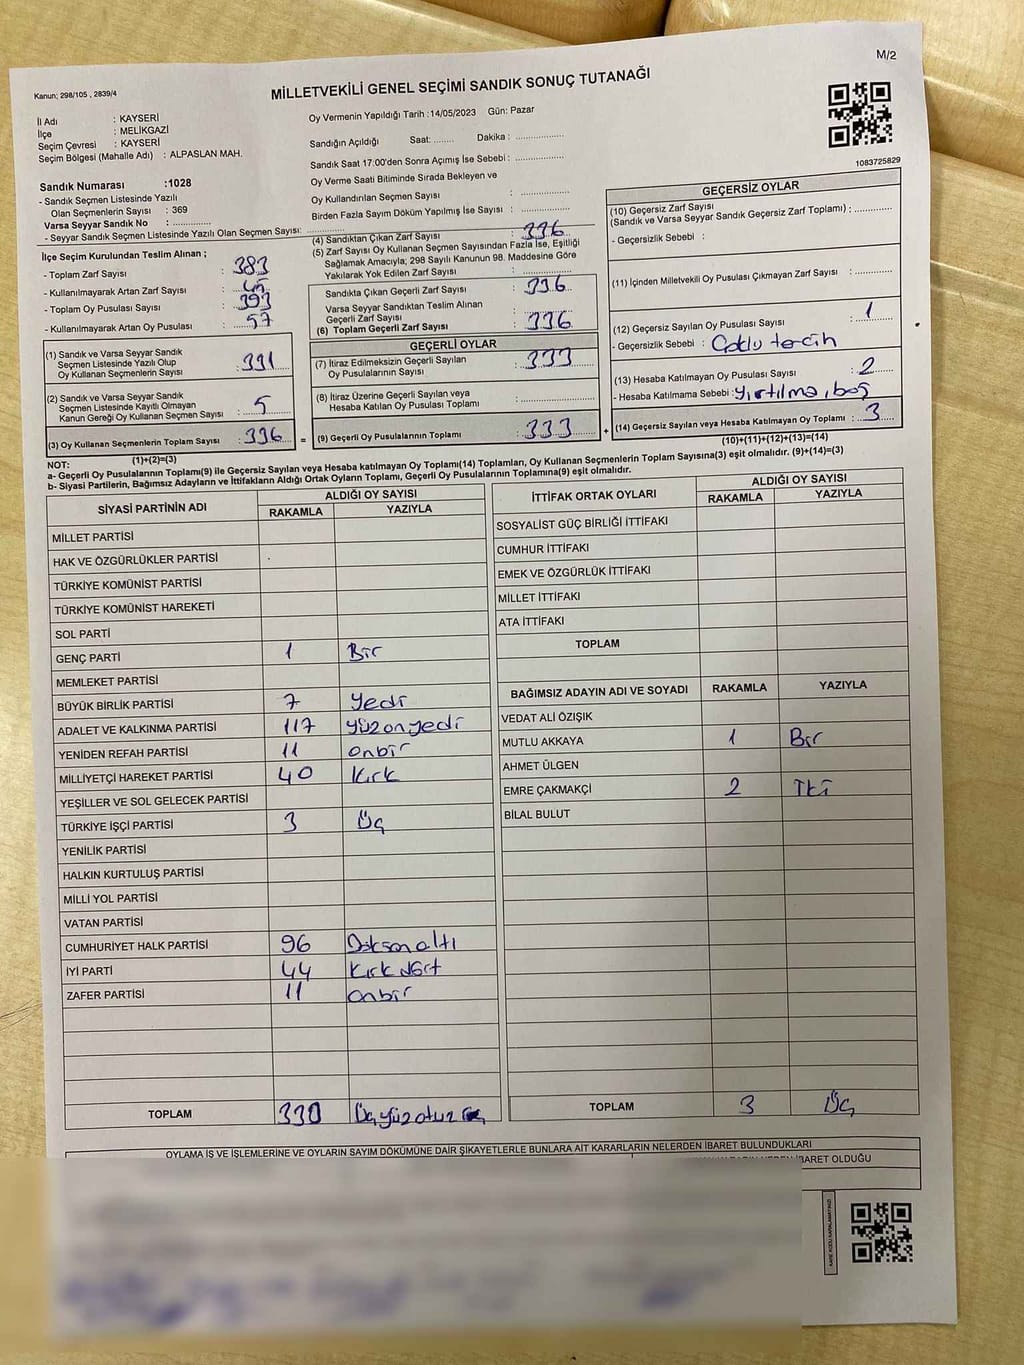 M/2
Kanun; 298/105 , 2839/4
MİLLETVEKİLİ GENEL SEÇİMİ SANDIK SONUÇ TUTANAĞI
İl Adı : KAYSERİ
İlçe : MELİKGAZİ
Seçim Çevresi : KAYSERİ
Seçim Bölgesi (Mahalle Adı) : ALPASLAN MAH.
Sandık Numarası :1028
- Sandık Seçmen Listesinde Yazılı
Olan Seçmenlerin Sayısı : 369
Varsa Seyyar Sandık No : ................
- Seyyar Sandık Seçmen Listesinde Yazılı Olan Seçmen Sayısı: ................
Oy Vermenin Yapıldığı Tarih :14/05/2023 Gün: Pazar
Sandığın Açıldığı Saat: ........ Dakika : ................
Sandık Saat 17:00'den Sonra Açımış İse Sebebi : ................
Oy Verme Saati Bitiminde Sırada Bekleyen ve
Oy Kullandırılan Seçmen Sayısı : ................
Birden Fazla Sayım Döküm Yapılmış İse Sayısı : ................
1083725829
İlçe Seçim Kurulundan Teslim Alınan ;
- Toplam Zarf Sayısı : 383
- Kullanılmayarak Artan Zarf Sayısı :
- Toplam Oy Pusulası Sayısı : 393
- Kullanılmayarak Artan Oy Pusulası : 57
(1) Sandık ve Varsa Seyyar Sandık
Seçmen Listesinde Yazılı Olup
Oy Kullanan Seçmenlerin Sayısı : 331
(2) Sandık ve Varsa Seyyar Sandık
Seçmen Listesinde Kayıtlı Olmayan
Kanun Gereği Oy Kullanan Seçmen Sayısı : 5
(3) Oy Kullanan Seçmenlerin Toplam Sayısı : 336
(1)+(2)=(3)
(4) Sandıktan Çıkan Zarf Sayısı : 336
(5) Zarf Sayısı Oy Kullanan Seçmen Sayısından Fazla İse, Eşitliği
Sağlamak Amacıyla; 298 Sayılı Kanunun 98. Maddesine Göre
Yakılarak Yok Edilen Zarf Sayısı : ................
Sandıkta Çıkan Geçerli Zarf Sayısı : 336
Varsa Seyyar Sandıktan Teslim Alınan
Geçerli Zarf Sayısı : ................
(6) Toplam Geçerli Zarf Sayısı : 336
GEÇERLİ OYLAR
(7) İtiraz Edilmeksizin Geçerli Sayılan
Oy Pusulalarının Sayısı : 333
(8) İtiraz Üzerine Geçerli Sayılan veya
Hesaba Katılan Oy Pusulası Toplamı : ................
= (9) Geçerli Oy Pusulalarının Toplamı : 333 +
GEÇERSİZ OYLAR
(10) Geçersiz Zarf Sayısı
(Sandık ve Varsa Seyyar Sandık Geçersiz Zarf Toplamı) : ............
- Geçersizlik Sebebi :
(11) İçinden Milletvekili Oy Pusulası Çıkmayan Zarf Sayısı : ............
(12) Geçersiz Sayılan Oy Pusulası Sayısı : 1
- Geçersizlik Sebebi : Çoklu tercih
(13) Hesaba Katılmayan Oy Pusulası Sayısı : 2
- Hesaba Katılmama Sebebi : Yırtılma, boş
(14) Geçersiz Sayılan veya Hesaba Katılmayan Oy Toplamı : 3
(10)+(11)+(12)+(13)=(14)
NOT:
a- Geçerli Oy Pusulalarının Toplamı(9) ile Geçersiz Sayılan veya Hesaba katılmayan Oy Toplamı(14) Toplamları, Oy Kullanan Seçmenlerin Toplam Sayısına(3) eşit olmalıdır. (9)+(14)=(3)
b- Siyasi Partilerin, Bağımsız Adayların ve İttifakların Aldığı Ortak Oyların Toplamı, Geçerli Oy Pusulalarının Toplamına(9) eşit olmalıdır.
SİYASİ PARTİNİN ADI ALDIĞI OY SAYISI
RAKAMLA YAZIYLA
MİLLET PARTİSİ
HAK VE ÖZGÜRLÜKLER PARTİSİ
TÜRKİYE KOMÜNİST PARTİSİ
TÜRKİYE KOMÜNİST HAREKETİ
SOL PARTİ
GENÇ PARTİ 1 Bir
MEMLEKET PARTİSİ
BÜYÜK BİRLİK PARTİSİ 7 Yedi
ADALET VE KALKINMA PARTİSİ 117 yüzonyedi
YENİDEN REFAH PARTİSİ 11 onbir
MİLLİYETÇİ HAREKET PARTİSİ 40 Kırk
YEŞİLLER VE SOL GELECEK PARTİSİ
TÜRKİYE İŞÇİ PARTİSİ 3 Üç
YENİLİK PARTİSİ
HALKIN KURTULUŞ PARTİSİ
MİLLİ YOL PARTİSİ
VATAN PARTİSİ
CUMHURİYET HALK PARTİSİ 96 Doksanaltı
İYİ PARTİ 44 Kırk dört
ZAFER PARTİSİ 11 onbir
TOPLAM 330 Üçyüzotuz
İTTİFAK ORTAK OYLARI ALDIĞI OY SAYISI
RAKAMLA YAZIYLA
SOSYALİST GÜÇ BİRLİĞİ İTTİFAKI
CUMHUR İTTİFAKI
EMEK VE ÖZGÜRLÜK İTTİFAKI
MİLLET İTTİFAKI
ATA İTTİFAKI
TOPLAM
BAĞIMSIZ ADAYIN ADI VE SOYADI RAKAMLA YAZIYLA
VEDAT ALİ ÖZIŞIK
MUTLU AKKAYA 1 Bir
AHMET ÜLGEN
EMRE ÇAKMAKÇİ 2 İki
BİLAL BULUT
TOPLAM 3 Üç
OYLAMA İŞ VE İŞLEMLERİNE VE OYLARIN SAYIM DÖKÜMÜNE DAİR ŞİKAYETLERLE BUNLARA AİT KARARLARIN NELERDEN İBARET BULUNDUKLARI
İBARET OLDUĞU